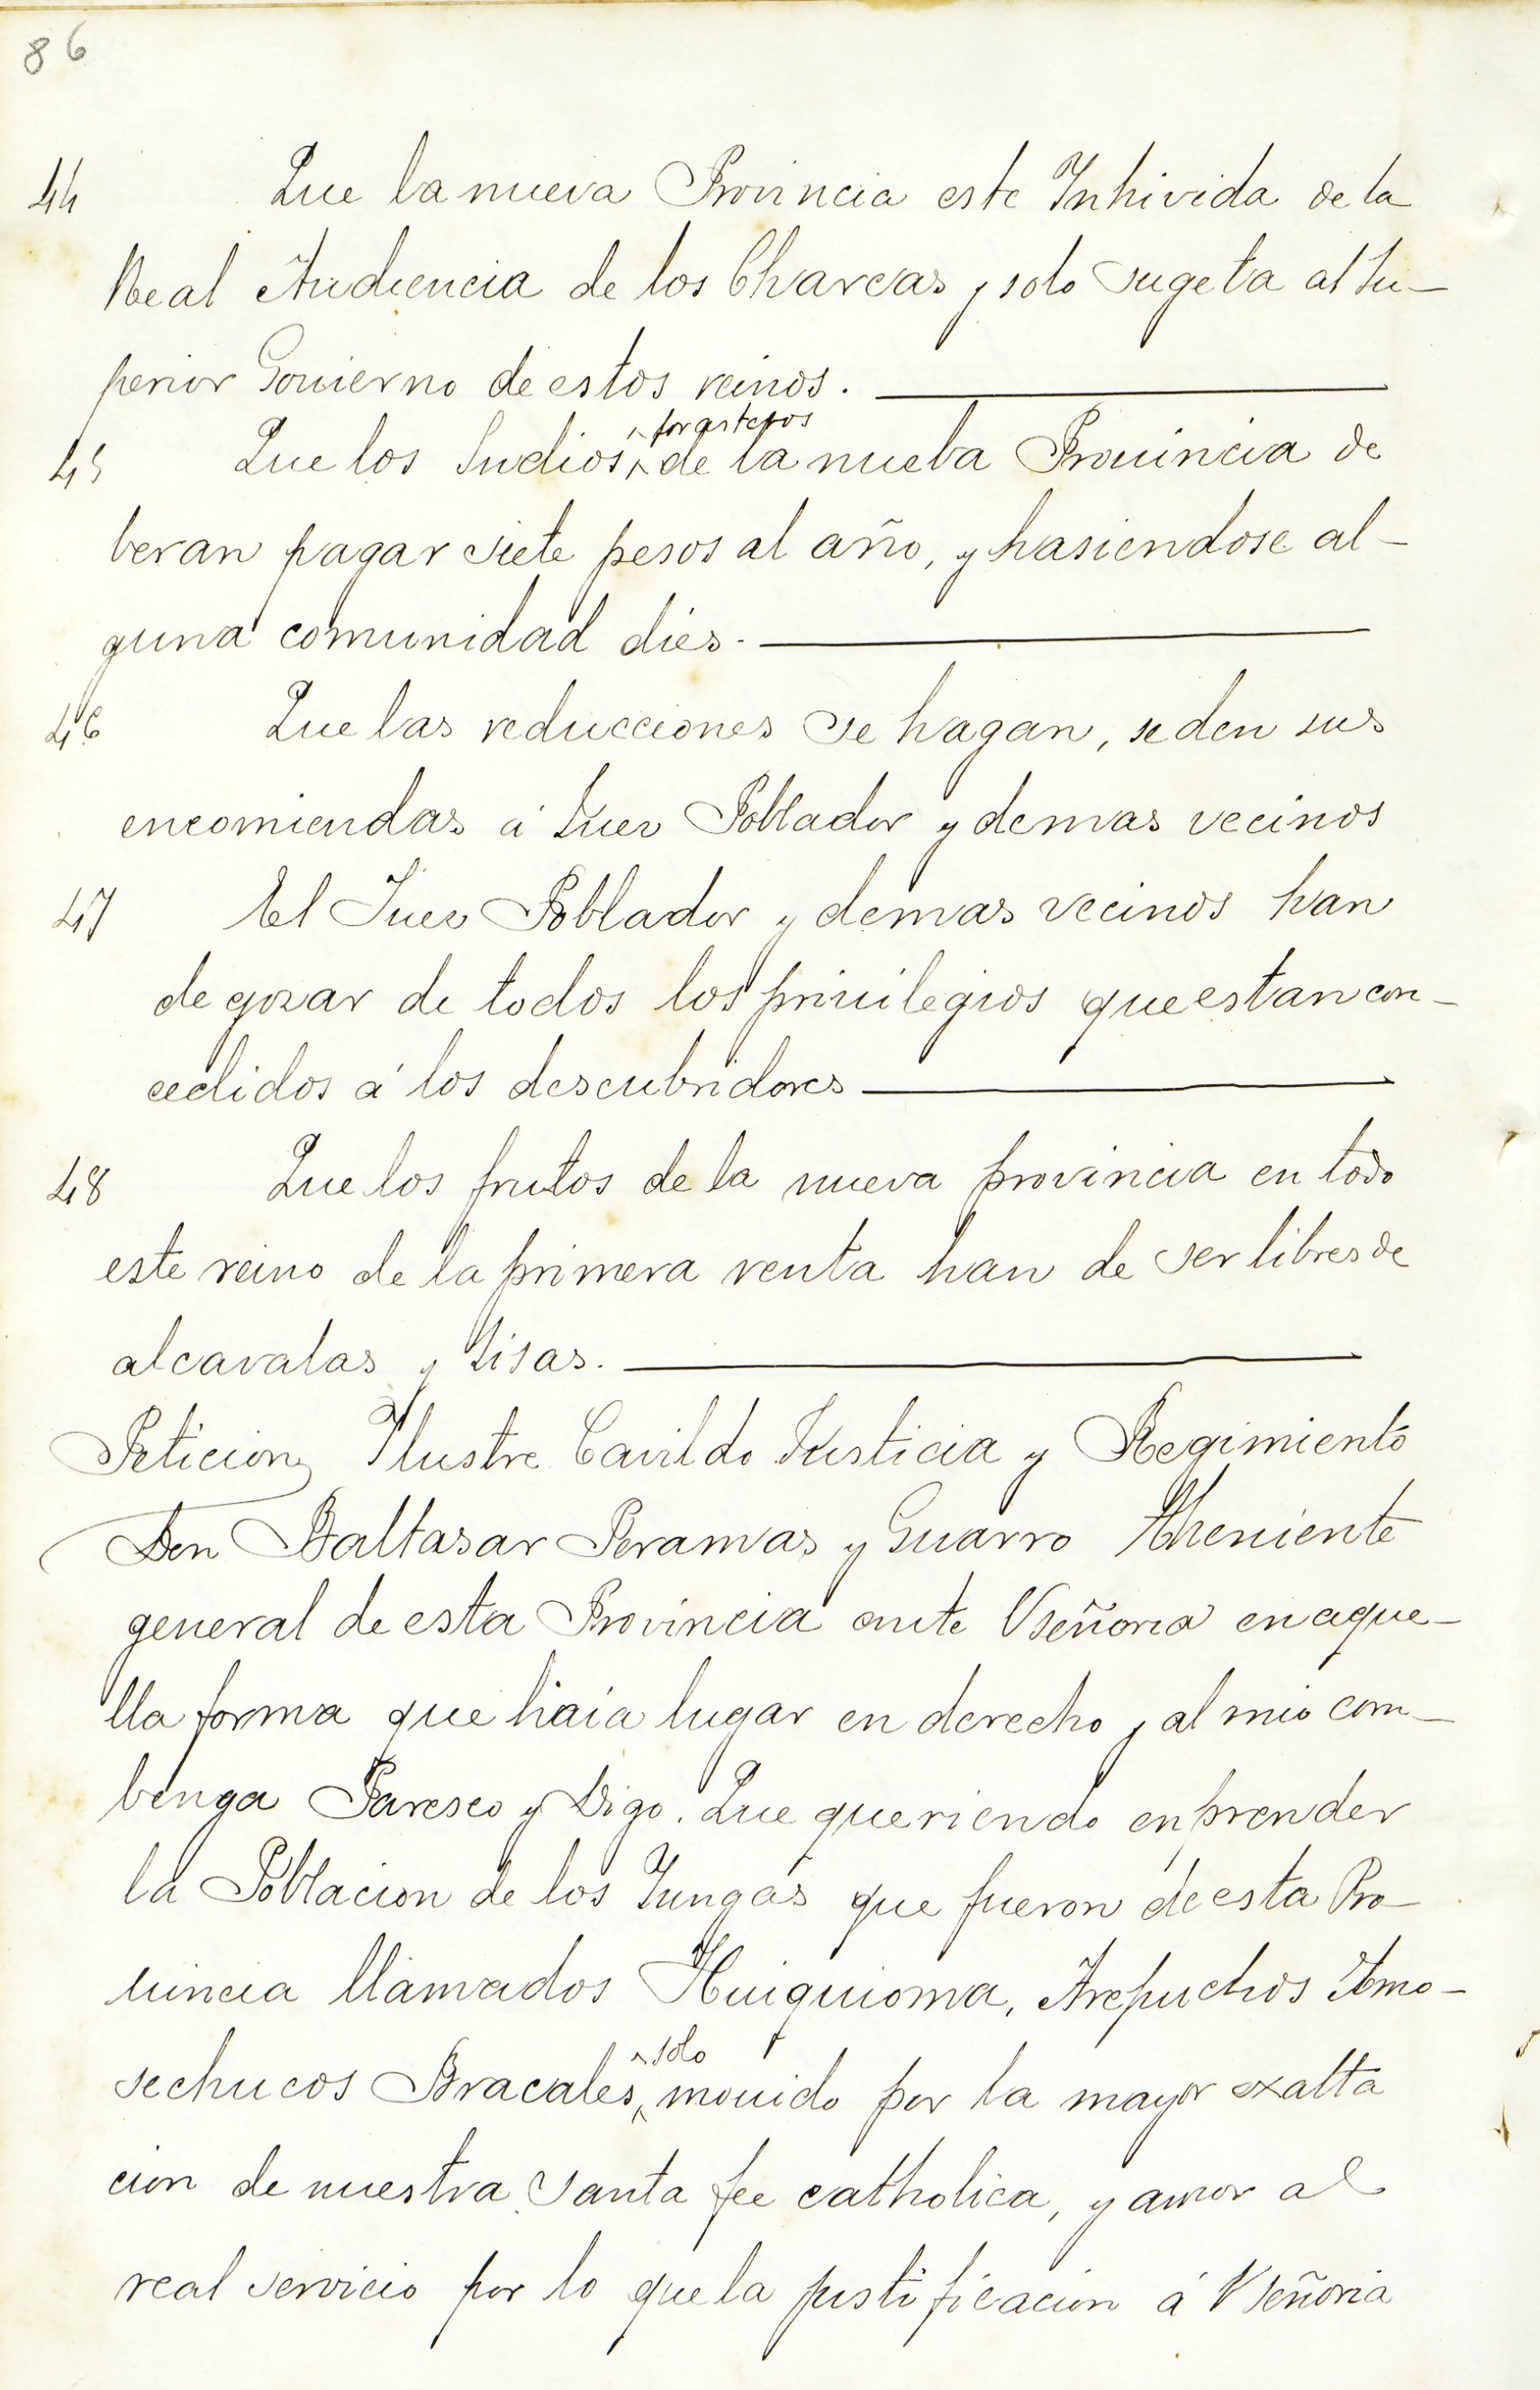 86
44 Que la nueva Provincia este Inhivida de la
Real Audiencia de los Charcas y solo sugeta al Su-
perior Gouierno de estos reinos.
forasteros
45 Que los Indios de la nueba Prouincia de
beran pagar siete pesos al año, y hasiendose al-
guna comunidad dies.
46 Que las reducciones se hagan, se den sus
encomiendas á Juez Poblador y demas vecinos
47 El Juez Poblador y demas vecinos han
de gozar de todos los priuilegios que estan con-
cedidos á los descubridores
48 Que los frutos de la nueva provincia en todo
este reino de la primera venta han de ser libres de
alcavalas y sisas.
Peticion Ilustre Cavildo Justicia y Regimiento
Don Baltasar Peramas y Guarro Theniente
general de esta Provincia ante Vseñoria en aque-
lla forma que haia lugar en derecho y al mio com-
benga Paresco y Digo. Que queriendo enprender
la Poblacion de los Yungas que fueron de esta Pro-
uincia llamados Huiquioma, Arepuchos Amo-
solo
sechucos Bracales mouido por la mayor exalta
cion de nuestra Santa fee catholica, y amor al
real servicio por lo que la justificacion á Vseñoria